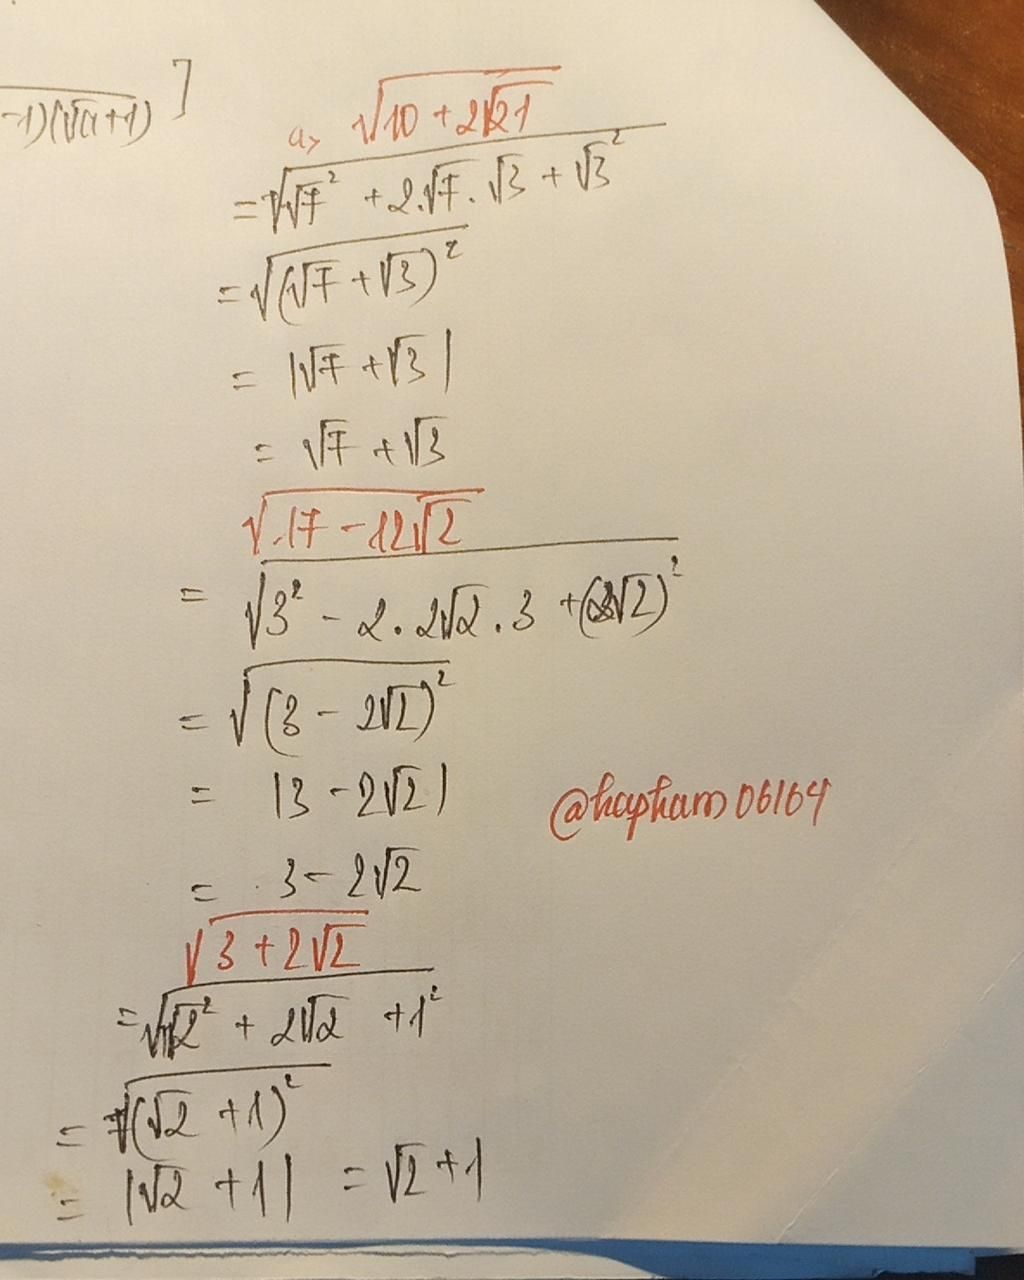 -1)(√a+1) ]
a, √(10 + 2√21)
= √(√7² + 2.√7.√3 + √3²)
= √((√7 + √3)²)
= |√7 + √3|
= √7 + √3
√(17 - 12√2)
= √(3² - 2.2√2.3 + (2√2)²)
= √((3 - 2√2)²)
= |3 - 2√2|
@hapham06164
= 3 - 2√2
√(3 + 2√2)
= √(√2² + 2√2 + 1²)
= √((√2 + 1)²)
= |√2 + 1| = √2 + 1